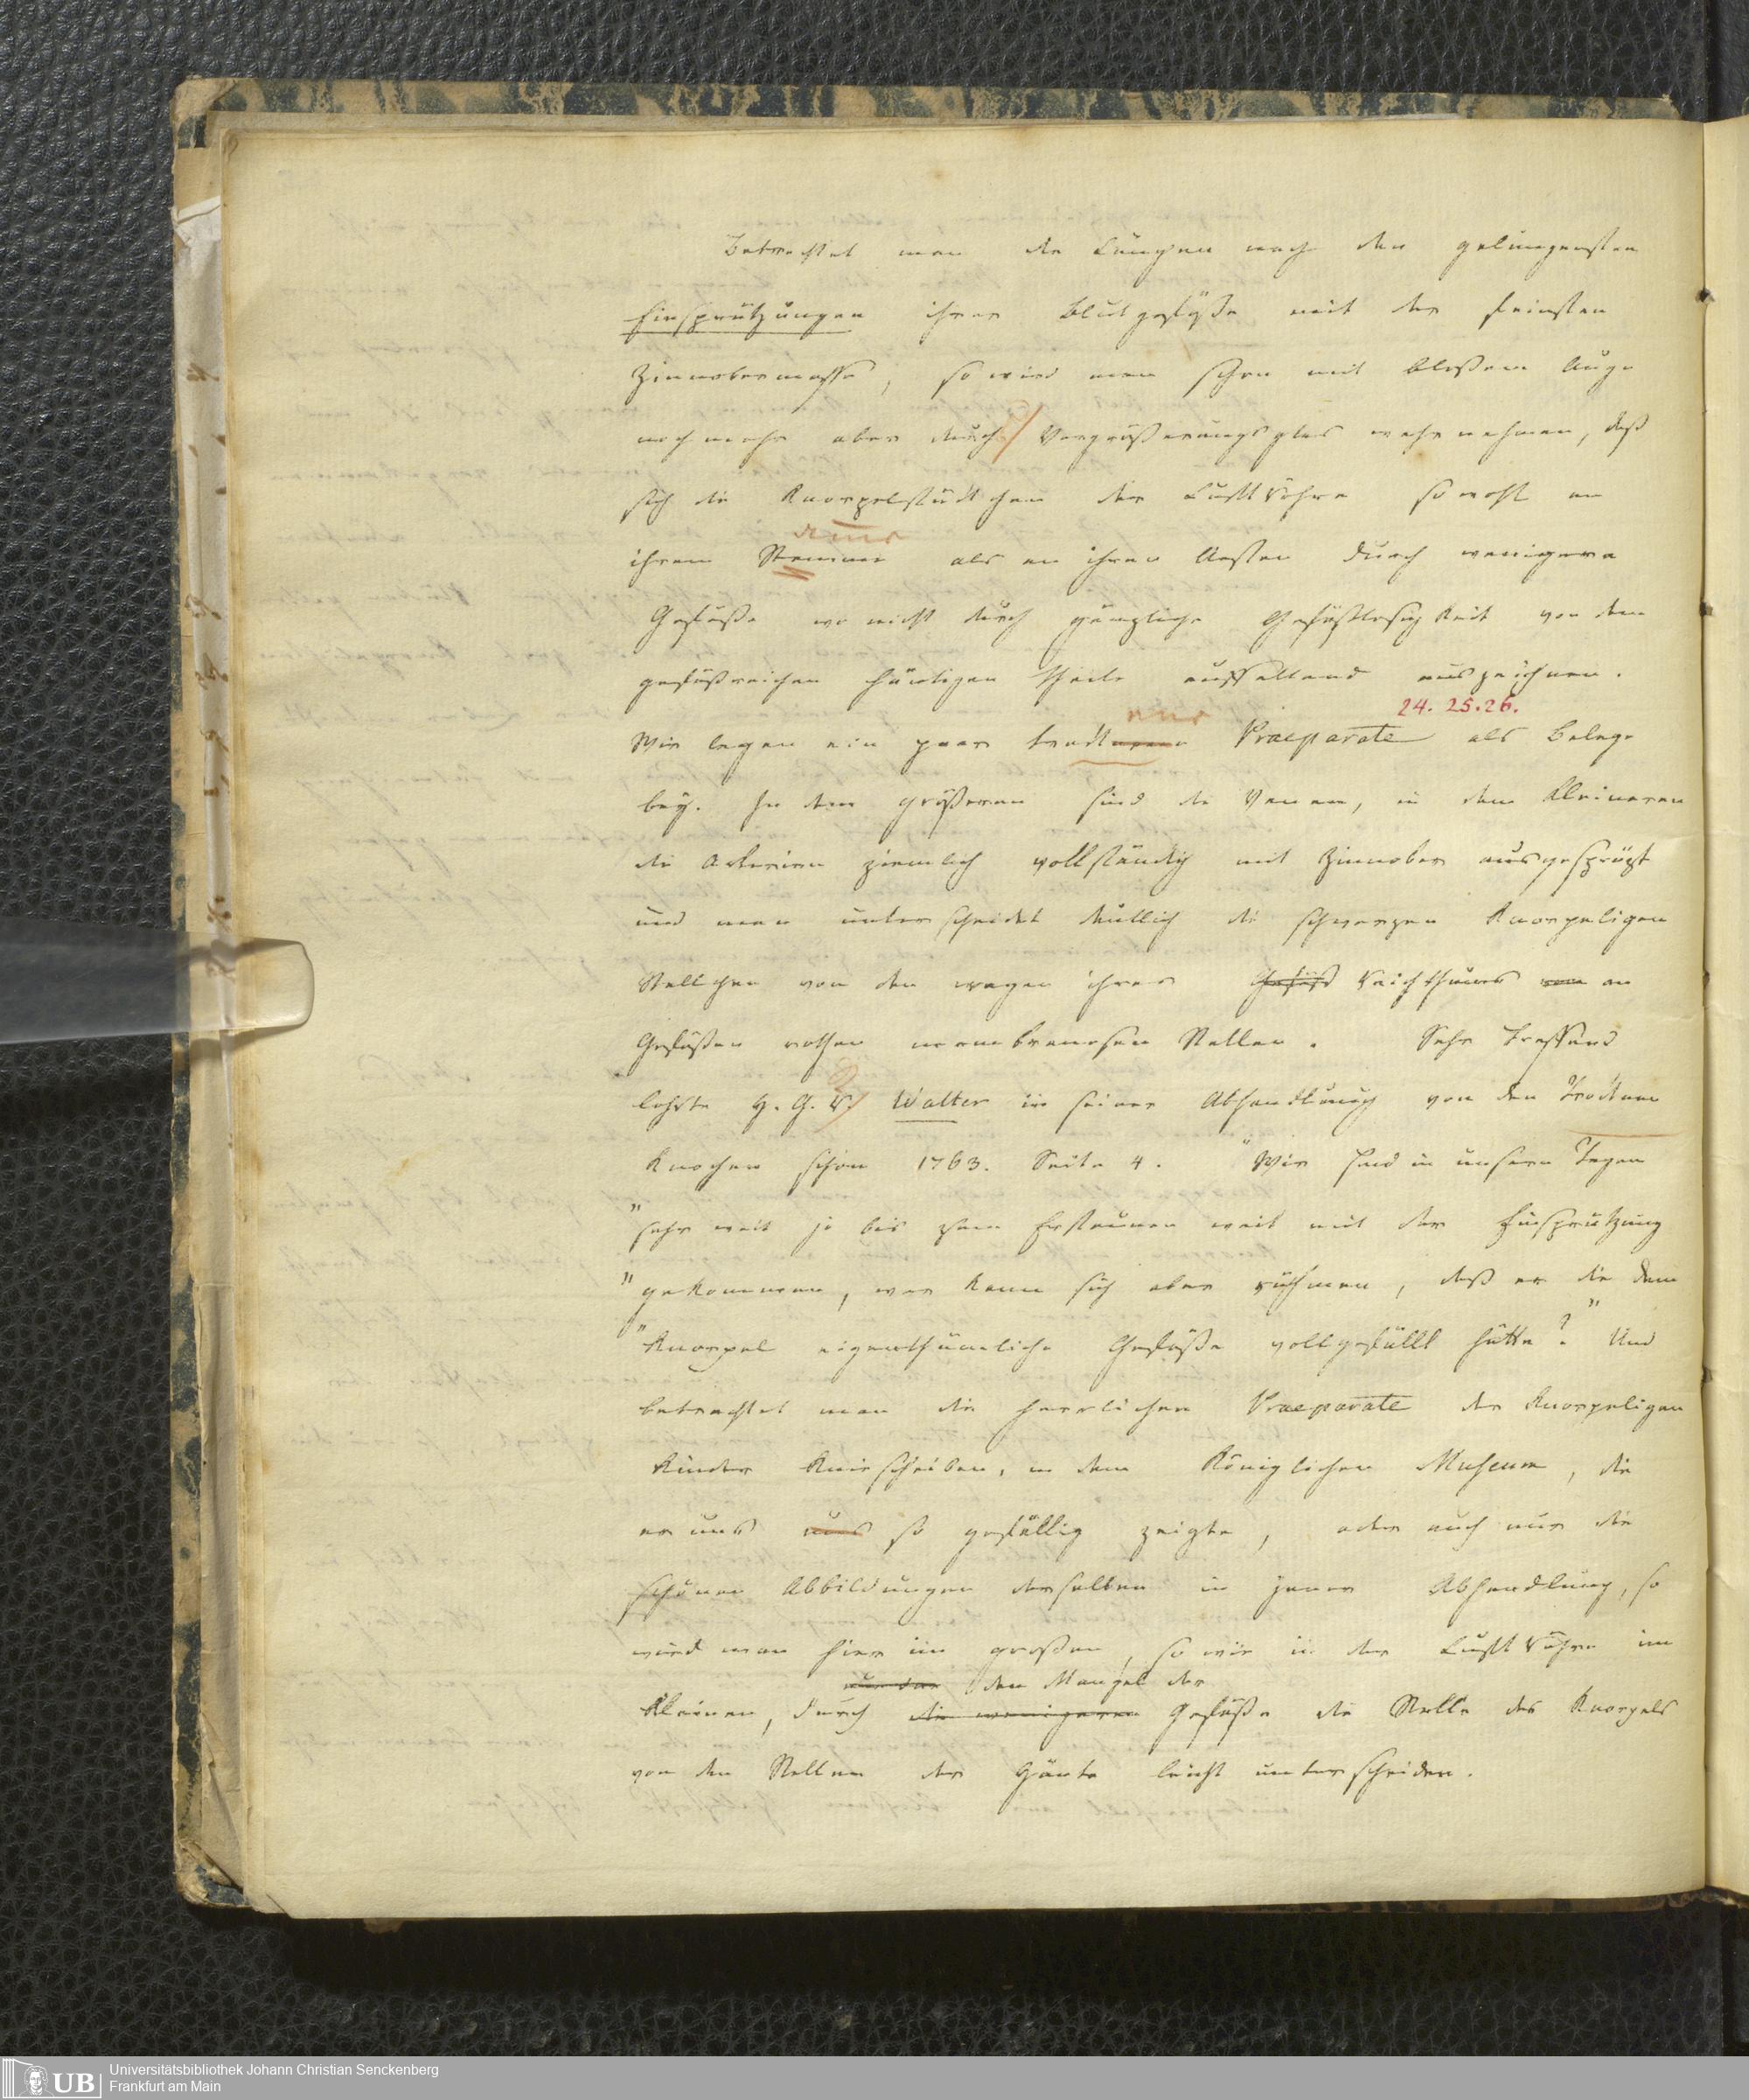 Betrachtet man die Lungen nach den gelungensten
Einsprützungen ihrer Blutgefäße mit der feinsten
Zinnobermasse, so wird man schon mit bloßem Auge
noch mehr aber durch Vergrößerungsglas wahrnehmen, daß
sich die Knorpelstückchen der Luftröhre sowohl an
ihrem Stamme als an ihren Aesten durch wenigere
Gefäße wo nicht durch gänzliche Gefäßlosigkeit von dem
gefäßreichen häutigen Theile auffallend auszeichnen.
24. 25. 26.
Wir legen ein paar Praeparate als Belege
bey. In dem größeren sind die Venen, in dem kleineren
die Arterien ziemlich vollständig mit Zinnober ausgesprüzt
und man unterscheidet deutlich die schwarzen knorpeligen
Stellchen von den wegen ihres Gefäß Reichthums an
Gefäßen rothen membranosen Stellen. Sehr treffend
lehrte H. G. R. Walter in seiner Abhandlung von den trocknen
Knochen schon 1763. Seite 4. "Wir sind in unsern Tagen
"sehr weit ja bis zum Erstaunen weit mit der Einsprützung
"gekommen, wer kann sich aber rühmen, daß er die dem
"Knorpel eigenthümliche Gefäße vollgefüllt hätte?" Und
betrachtet man die herrlichen Praeparate der knorpeligen
Kinder Kniescheiben, in dem Königlichen Museum, die
er uns uns so gefällig zeigte, oder auch nur die
schönen Abbildungen derselben in jener Abhandlung, so
wird man hier im großen, so wie in der Luftröhre im
den Mangel der
Kleinen, durch die wenigeren Gefäße die Stelle des Knorpels
von den Stellen der Häute leicht unterscheiden.
UB
Universitätsbibliothek Johann Christian Senckenberg
Frankfurt am Main